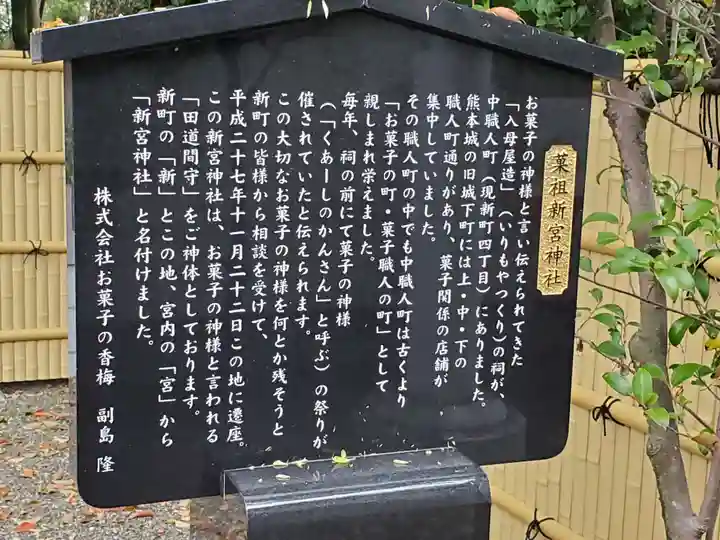 菓祖新宮神社
お菓子の神様と言い伝えられてきた
「入母屋造」(いりもやつくり)の祠が、
中職人町(現新町四丁目)にありました。
熊本城の旧城下町には上・中・下の
職人町通りがあり、菓子関係の店舗が
集中していました。
その職人町の中でも中職人町は古くより
「お菓子の町・菓子職人の町」として
親しまれ栄えました。
毎年、祠の前にて菓子の神様
(「くあーしのかんさん」と呼ぶ)の祭りが
催されていたと伝えられます。
この大切なお菓子の神様を何とか残そうと
新町の皆様から相談を受けて、
平成二十七年十一月二十二日この地に遷座。
この新宮神社は、お菓子の神様と言われる
「田道間守」をご神体としております。
新町の「新」とこの地、宮内の「宮」から
「新宮神社」と名付けました。
株式会社お菓子の香梅 副島 隆